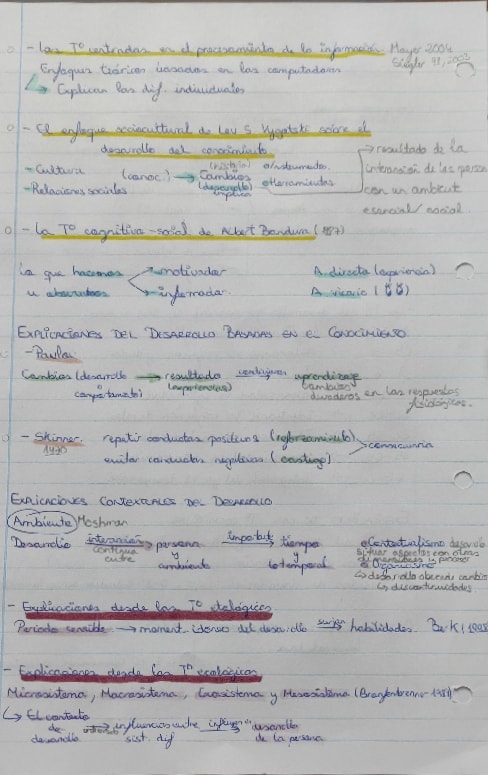 - Las Tº centradas en el procesamiento de la información Mayer 2004
Siegler 98, 2003
Enfoques teóricos basados en las computadoras
↳ Explican las dif. individuales
- El enfoque sociocultural de Lev S. Vygotski sobre el
desarrollo del conocimiento
- Cultura
- Relaciones sociales
(conoc.) → Cambios
(desarrollo) implica
Instrumento
Herramientas
→ resultado de la
interacción de las personas
con un ambiente
esencial/social
- La Tº cognitivo-social de Albert Bandura (1987)
Lo que hacemos
u observamos
motivador
informador
A directo (experiencia)
A vicario
EXPLICACIONES DEL DESARROLLO BASADAS EN EL CONOCIMIENTO
- Pavlov
Cambios (desarrollo
o
comportamiento)
→ resultado
(experiencias)
aprendizaje
cambios
duraderos en las respuestas
fisiológicas.
- Skinner
repetir conductas positivas (reforzamiento)
evitar conductas negativas (castigo)
consecuencia
EXPLICACIONES CONTEXTUALES DEL DESARROLLO
Ambiente Moshman
Desarrollo interacción continua entre persona
y
ambiente
importante tiempo
y
lo temporal
Contextualismo desarrollo
Organicismo
↳ desarrollo
↳ discontinuidades
- Explicaciones desde las Tº etológicas
Periodo sensible → moment. idóneo del desarrollo surgen → habilidades.
- Explicaciones desde las Tº ecológicas
Microsistema, Macrosistema, Exosistema y Mesosistema (Bronfenbrenner
↳ El contexto
de
desarrollo
→ influencias entre
sist. dif
influyen → desarrollo
de la persona